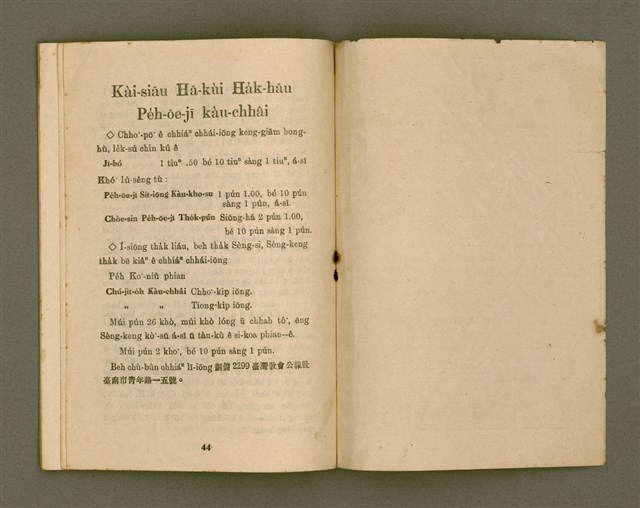 Kài-siāu Hā-kùi Ha̍k-hāu
Pe̍h-ōe-jī kàu-chhâi
◇ Chho͘-pō͘ ê chhiáⁿ chhái-iōng keng-giām hong-
hù, le̍k-sú chin kú ê
Jī-bó 1 tiuⁿ .50 bé 10 tiuⁿ sàng 1 tiuⁿ, á-sī
Khó͘ Iú-sêng tù :
Pe̍h-ōe-jī Si̍t-iōng Kàu-kho-su 1 pún 1.00, bé 10 pún
sàng 1 pún, á-sī
Chòe-sin Pe̍h-ōe-jī Tho̍k-pún Siōng-hā 2 pún 1.00,
bé 10 pún sàng 1 pún.
◇ Í-siōng tha̍k liáu, beh tha̍k Sèng-si, Sèng-keng
tha̍k bē kiâⁿ ê chhiáⁿ chhái-iōng
Pe̍h Ko͘-niû phian
Chú-ji̍t-o̍h Kàu-chhâi Chho͘-kip iōng.
„ „ Tiong-kip iōng.
Múi pún 26 khò, múi khò lóng ū chhah tô͘, ēng
Sèng-keng kò͘-sū á-sī ū tàn-kù ê si-koa phian--ê.
Múi pún 2 kho͘, bé 10 pún sàng 1 pún.
Beh chù-bûn chhiáⁿ lī-iōng 劃儲 2299 臺灣敎會公報社
臺南市靑年路一五號。
44